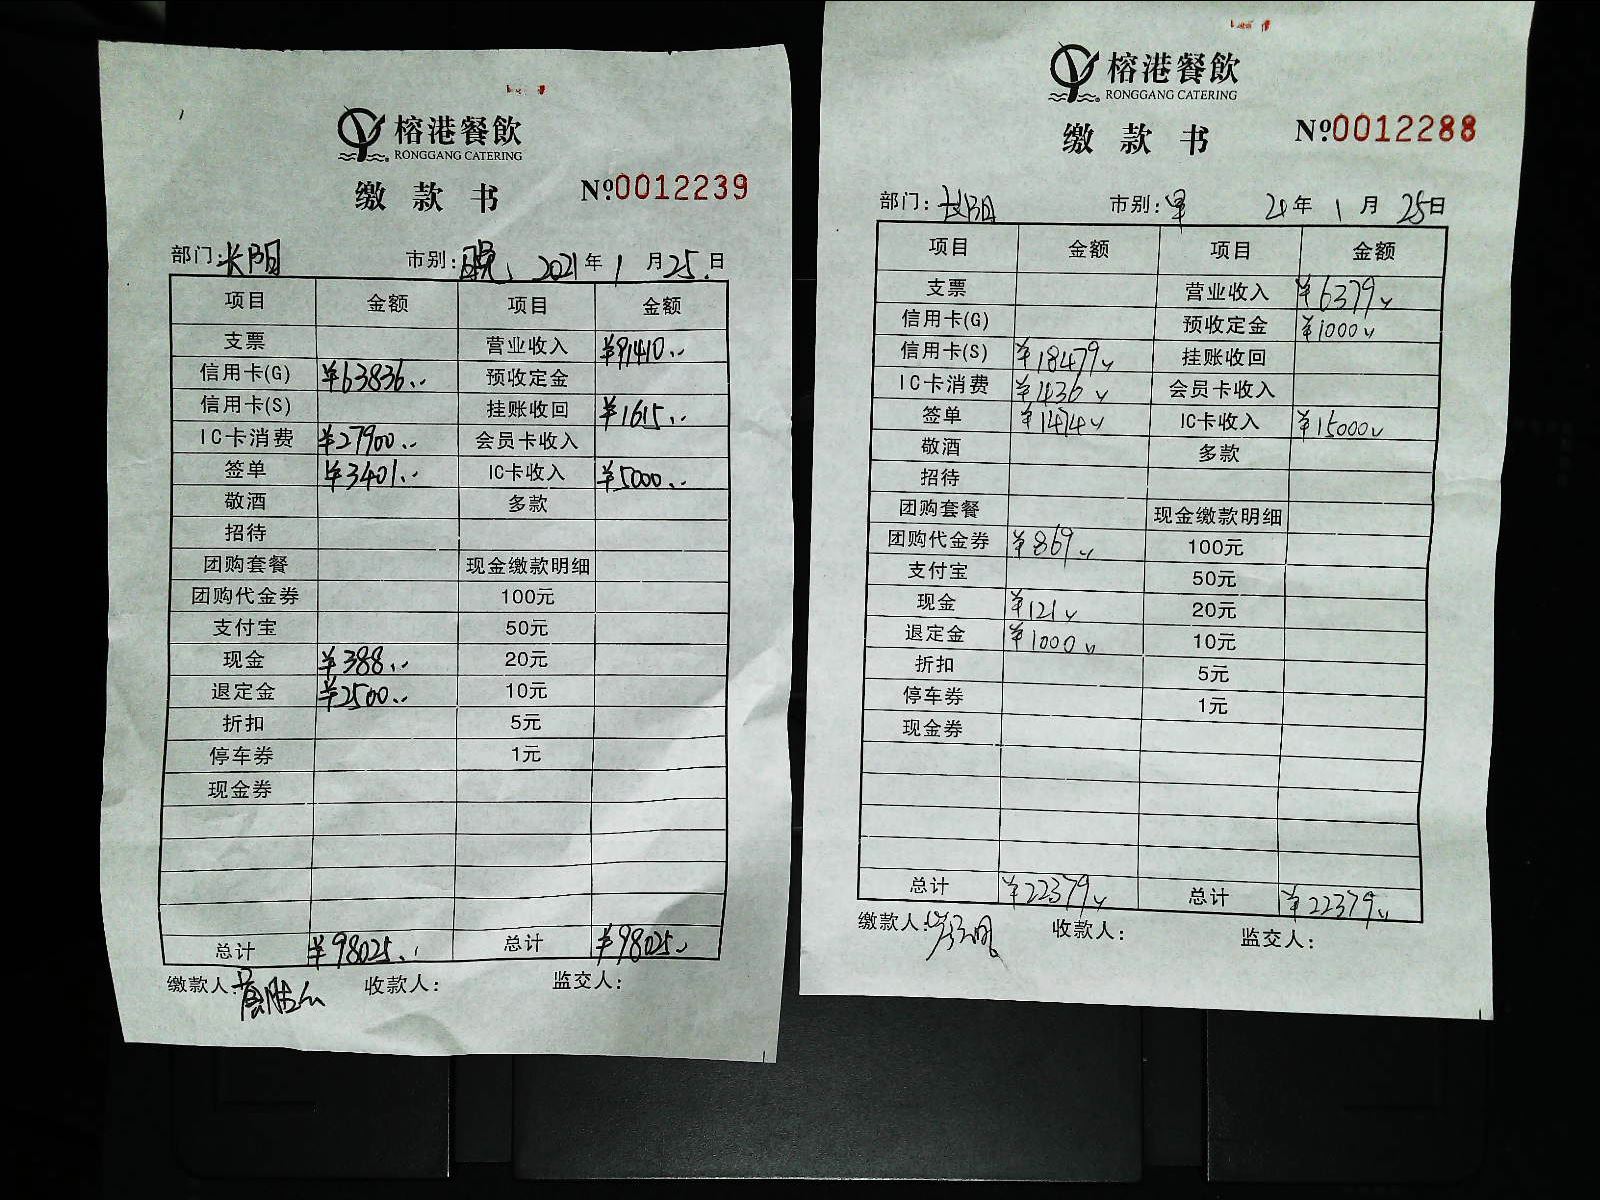 榕港餐飲
RONGGANG CATERING
缴款书
№0012239
部门:长阳 市别:晚 2021年1月25日
项目 金额 项目 金额
支票 营业收入 ¥91410..
信用卡(G) ¥63836.. 预收定金
信用卡(S) 挂账收回 ¥1615..
IC卡消费 ¥27900.. 会员卡收入
签单 ¥3401.. IC卡收入 ¥5000..
敬酒 多款
招待
团购套餐 现金缴款明细
团购代金券 100元
支付宝 50元
现金 ¥388.. 20元
退定金 ¥2500.. 10元
折扣 5元
停车券 1元
现金券
总计 ¥98025.. 总计 ¥98025..
缴款人: 收款人: 监交人:
榕港餐飲
RONGGANG CATERING
缴款书
№0012288
部门:长阳 市别:早 21年1月25日
项目 金额 项目 金额
支票 营业收入 ¥6379
信用卡(G) 预收定金 ¥1000
信用卡(S) ¥18479 挂账收回
IC卡消费 ¥436 会员卡收入
签单 ¥1474 IC卡收入 ¥15000
敬酒 多款
招待
团购套餐 现金缴款明细
团购代金券 ¥869 100元
支付宝 50元
现金 ¥121 20元
退定金 ¥1000 10元
折扣 5元
停车券 1元
现金券
总计 ¥22379 总计 ¥22379
缴款人: 收款人: 监交人: